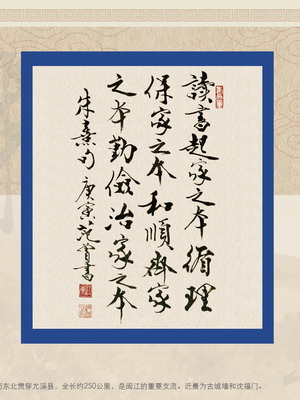 讀書起家之本循理
保家之本和順齊家
之本勤儉治家之本
朱熹句 庚寅 范曾書
东北贯穿尤溪县，全长约250公里，是闽江的重要支流。近景为古城墙和沈福门。